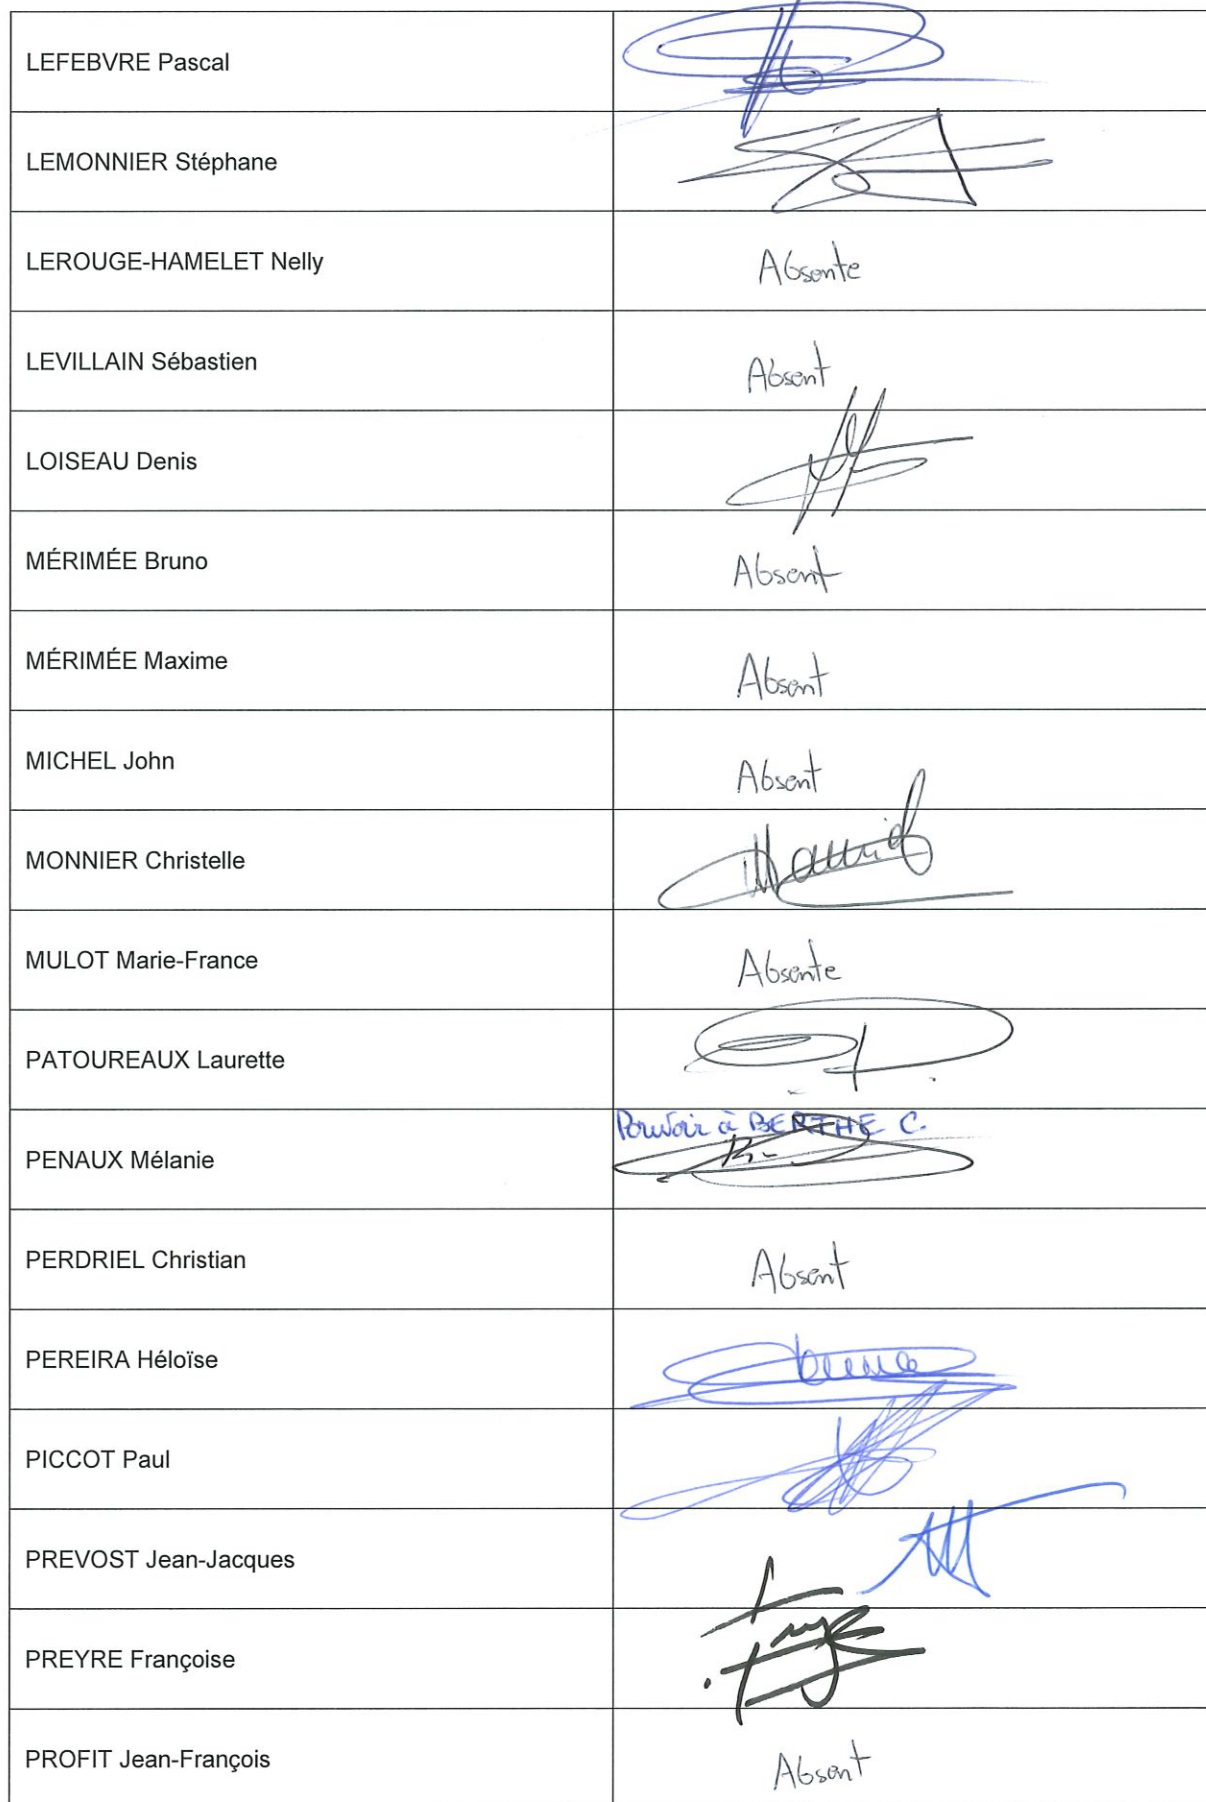 LEFEBVRE Pascal
LEMONNIER Stéphane
LEROUGE-HAMELET Nelly Absente
LEVILLAIN Sébastien Absent
LOISEAU Denis
MÉRIMÉE Bruno Absent
MÉRIMÉE Maxime Absent
MICHEL John Absent
MONNIER Christelle
MULOT Marie-France Absente
PATOUREAUX Laurette
Pouvoir à BERTHE C.
PENAUX Mélanie
PERDRIEL Christian Absent
PEREIRA Héloïse
PICCOT Paul
PREVOST Jean-Jacques
PREYRE Françoise
PROFIT Jean-François Absent